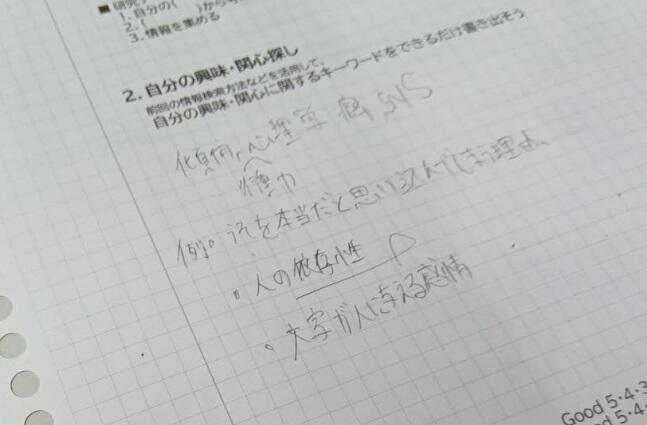 ■ 研究
1. 自分の(
2. (　　　)から
3. 情報を集める
2. 自分の興味・関心探し
前回の情報検索方法などを活用して、
自分の興味・関心に関するキーワードをできるだけ書き出そう
傾向、心理学 SNS
権力
例。 うそを本当だと思い込んでしまう理由
・人の依存性
。文字が人に与える感情
Good 5・4・3
d 5・4・